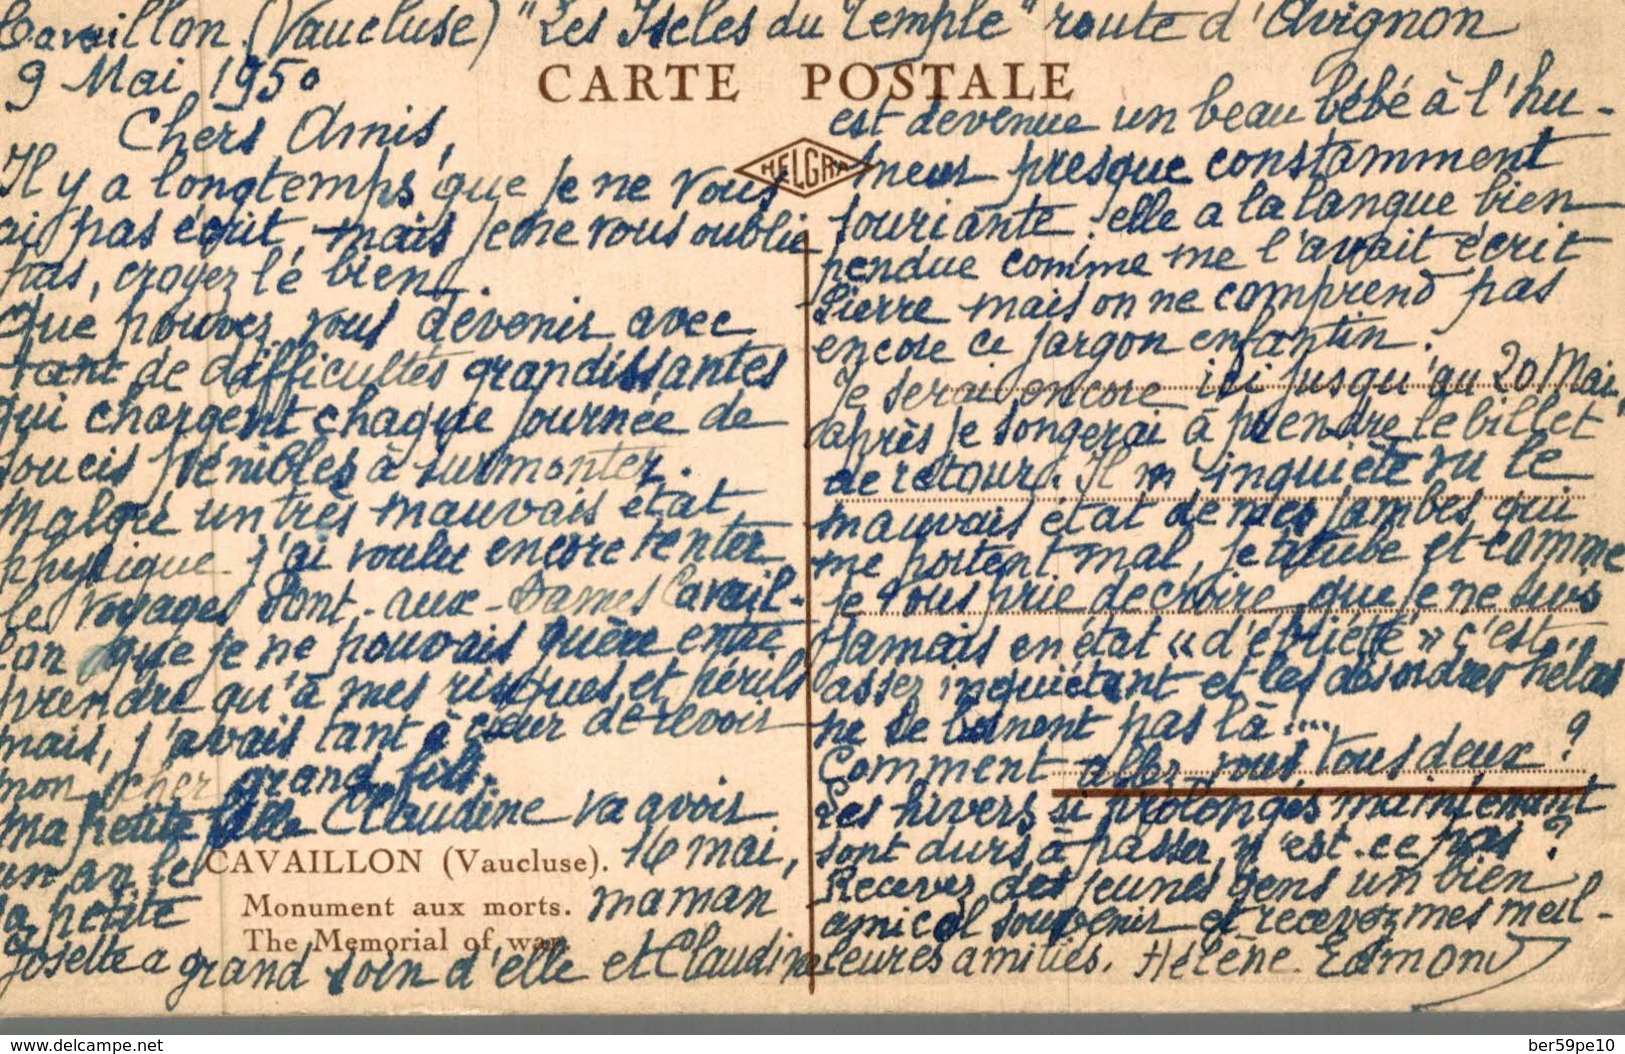 Cavaillon (Vaucluse) "Les Iscles du Temple" route d'Avignon
9 Mai 1950
CARTE POSTALE
HELGRA
Chers Amis,
Il y a longtemps que je ne vous
ai pas écrit, mais je ne vous oublie
pas, croyez lé bien.
Que pouvez vous devenir avec
tant de difficultés grandissantes
qui chargent chaque journée de
soucis pénibles à surmonter.
Malgré un très mauvais état
physique j'ai voulu encore tenter
le voyages dont aux Dames Cavail-
lon que je ne pouvais guère entre
prendre qu'à mes risques et périls
mais, j'avais tant à cœur de revoir
mon cher grand fils.
Ma petite fille Claudine va avoir
un an le 16 mai,
sa petite maman
Josette a grand soin d'elle et Claudine
CAVAILLON (Vaucluse).
Monument aux morts.
The Memorial of war.
est devenue un beau bébé à l'hu-
meur presque constamment
souriante : elle a la langue bien
pendue comme me l'avait écrit
Pierre mais on ne comprend pas
encore ce jargon enfantin.
Je serai encore ici jusqu'au 20 Mai,
après je songerai à prendre le billet
de retour. Il m'inquiète vu le
mauvais état de mes jambes qui
me portent mal, je titube et comme
je vous prie de croire que je ne suis
jamais en état « d'ébriété » c'est
assez inquiétant et les désordres hélas
ne se bornent pas là ....
Comment allez vous tous deux ?
Les hivers si prolongés maintenant
sont durs à passer, n'est-ce pas ?
Recevez des jeunes gens un bien
amical souvenir et recevez mes meil-
leures amitiés. Hélène. Edmond
delcampe.net
ber59pe10